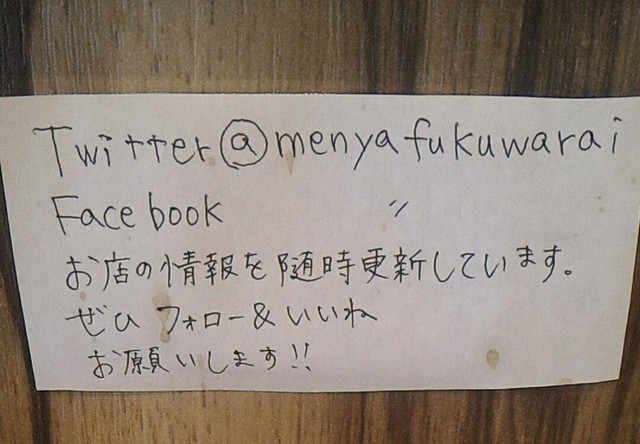 Twitter@menyafukuwarai
Facebook 〃
お店の情報を随時更新しています。
ぜひフォロー&いいね
お願いします!!